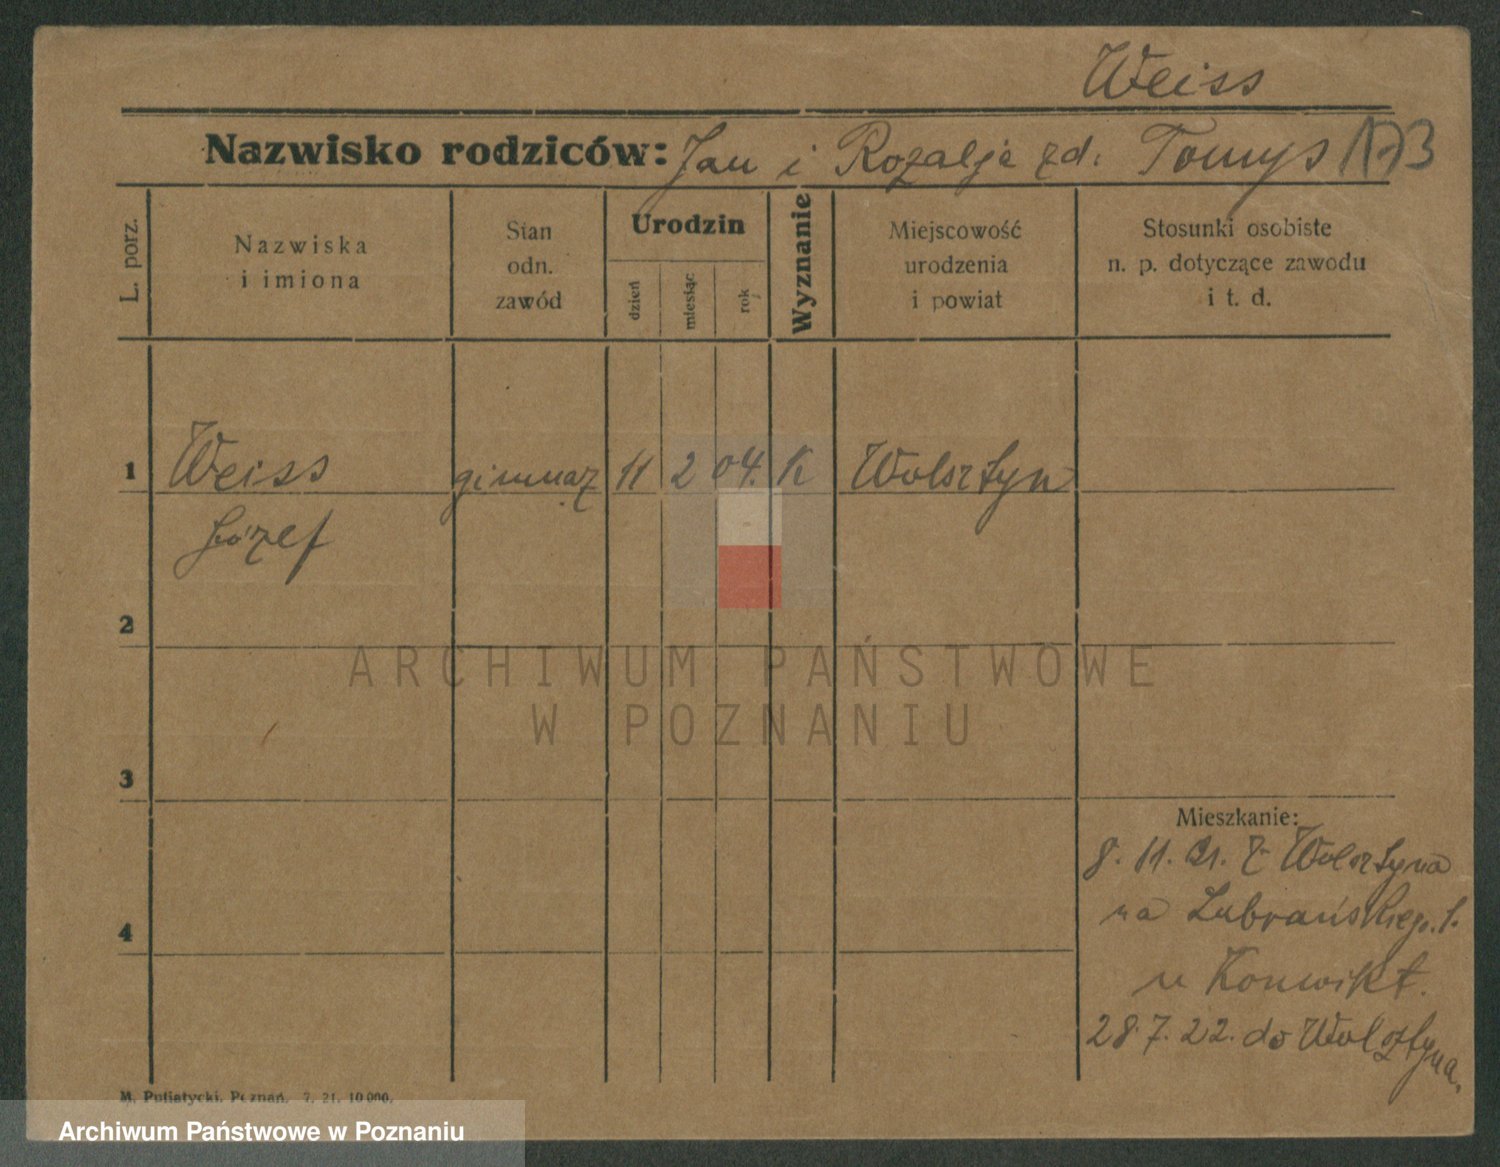 Weiss
Nazwisko rodziców: Jan i Rozalja zd. Tomys 173
L. porz.
Nazwiska
i imiona
Stan
odn.
zawód
Urodzin
dzień
miesiąc
rok
Wyznanie
Miejscowość
urodzenia
i powiat
Stosunki osobiste
n. p. dotyczące zawodu
i t. d.
1 Weiss gimnaz 11 2 04. K Wolsztyn
Józef
2
ARCHIWUM PAŃSTWOWE
W POZNANIU
3
Mieszkanie:
8. 11. 21. z Wolsztyna
na Lubrańskiego. 1.
4
u Konwikt.
28. 7. 22. do Wolsztyna.
M. Putiatycki, Poznań. 7. 21. 10 000.
Archiwum Państwowe w Poznaniu